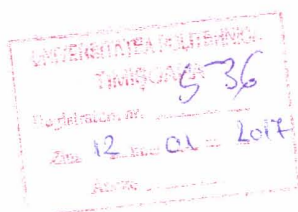 UNIVERSITATEA POLITEHNICA
TIMIȘOARA
536
Registratura, nr.
Ziua 12 luna 01 2017